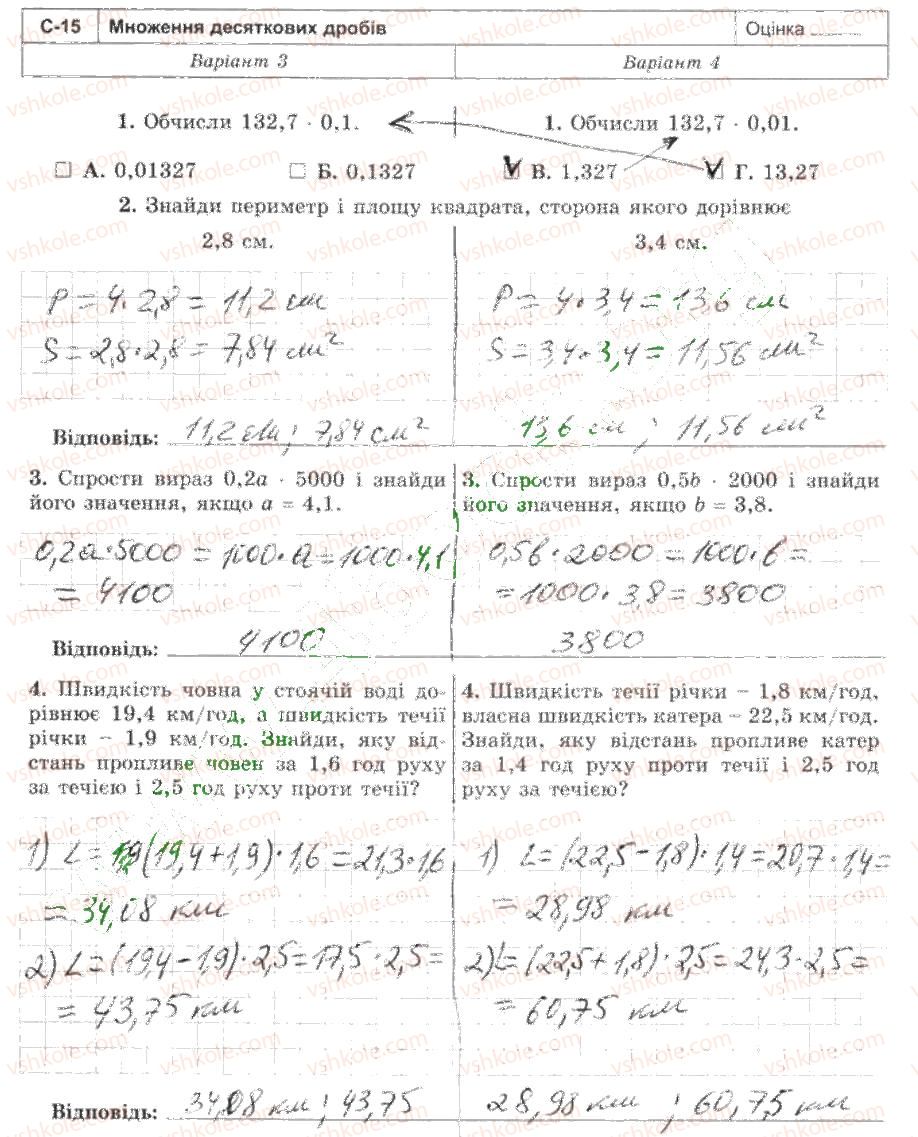 С-15 Множення десяткових дробів Оцінка
Варіант 3 Варіант 4
1. Обчисли 132,7 · 0,1. 1. Обчисли 132,7 · 0,01.
А. 0,01327 Б. 0,1327 В. 1,327 Г. 13,27
2. Знайди периметр і площу квадрата, сторона якого дорівнює
2,8 см. 3,4 см.
P = 4 · 2,8 = 11,2 см
S = 2,8 · 2,8 = 7,84 см²
P = 4 · 3,4 = 13,6 см
S = 3,4 · 3,4 = 11,56 см²
Відповідь: 11,2 см; 7,84 см² 13,6 см; 11,56 см²
3. Спрости вираз 0,2a · 5000 і знайди
його значення, якщо a = 4,1.
0,2a · 5000 = 1000 · a = 1000 · 4,1
= 4100
Відповідь: 4100
3. Спрости вираз 0,5b · 2000 і знайди
його значення, якщо b = 3,8.
0,5b · 2000 = 1000 · b =
= 1000 · 3,8 = 3800
3800
4. Швидкість човна у стоячій воді до-
рівнює 19,4 км/год, а швидкість течії
річки – 1,9 км/год. Знайди, яку від-
стань пропливе човен за 1,6 год руху
за течією і 2,5 год руху проти течії?
1) L = (19,4 + 1,9) · 1,6 = 21,3 · 1,6
= 34,08 км
2) L = (19,4 – 1,9) · 2,5 = 17,5 · 2,5 =
= 43,75 км
Відповідь: 34,08 км; 43,75
4. Швидкість течії річки – 1,8 км/год,
власна швидкість катера – 22,5 км/год.
Знайди, яку відстань пропливе катер
за 1,4 год руху проти течії і 2,5 год
руху за течією?
1) L = (22,5 – 1,8) · 1,4 = 20,7 · 1,4 =
= 28,98 км
2) L = (22,5 + 1,8) · 2,5 = 24,3 · 2,5 =
= 60,75 км
28,98 км; 60,75 км
vshkole.com